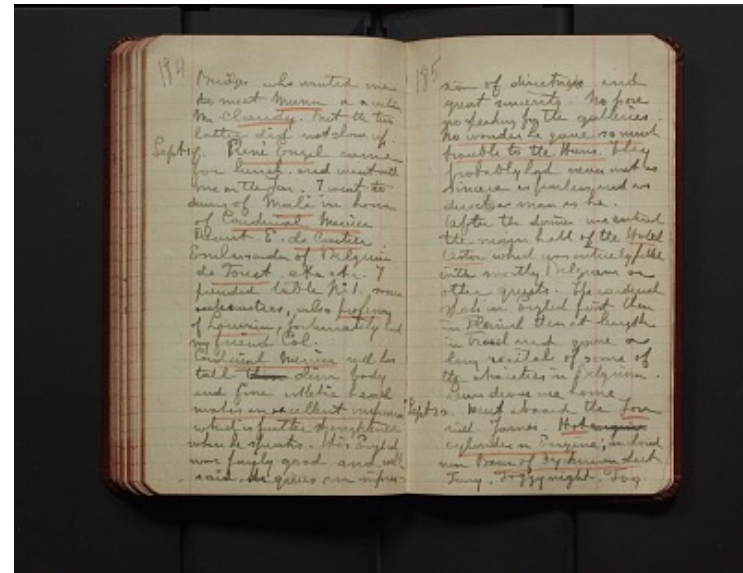 184
Bridge who wanted me
to meet Munn a
Mr. Claudy. But the two
latter did not show up.
Sept 19. René Engel came
for lunch and went with
me on the I went to
dinner of Mali in honor
of Cardinal Mercier
Present. E. de Cartier
Embassador of Belgium
de Forest, etc. etc. I
table No 1. some
ecclesiastics, also
of Louvain, fortunately had
my friend Col.
Cardinal Mercier with his
tall slim body
and fine athletic head
makes an excellent impression
which is further strengthened
when he speaks. His English
was fairly good and well
said. He gives an impres-
185
sion of directness and
great sincerity. No pose
no speaking for the galleries.
No wonder he gave so much
trouble to the Huns. They
probably had never met as
sincere as fearless and as
direct a man as he.
After the dinner we entered
the main hall of the Hotel
Astor which was entirely filled
with mostly Belgians or
other guests. The cardinal
spoke in English first then
in Flemish then at length
in French and gave a
long recital of some of
the atrocities in Belgium.
drove me home.
Sept 20. Went aboard the
with James.
cylinder in Engine, anchored
near
Ferry. Foggy night. Fog